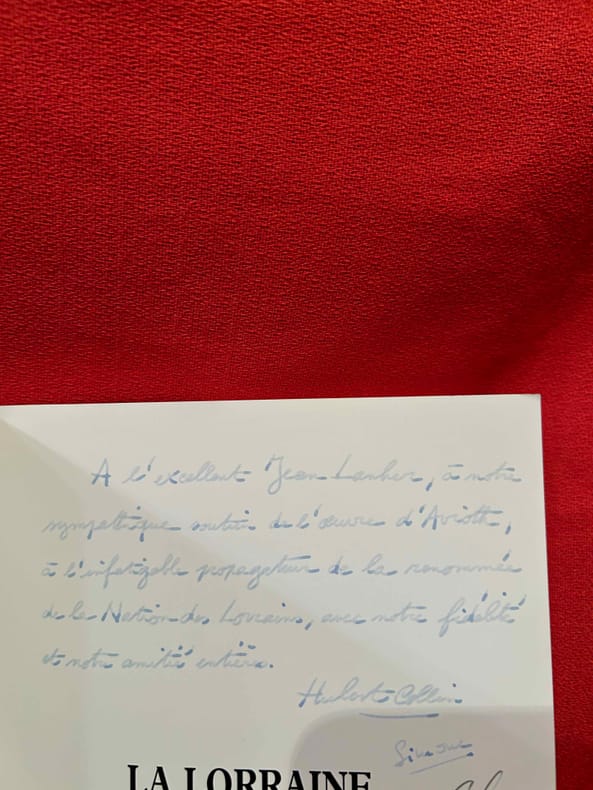 A l'excellent Jean Lanher, à notre
sympathique soutien de l'œuvre d'Avioth,
à l'infatigable propagateur de la renommée
de la Nation des Lorrains, avec notre fidélité
et notre amitié entière.
Hubert Collin
Simone
LA LORRAINE